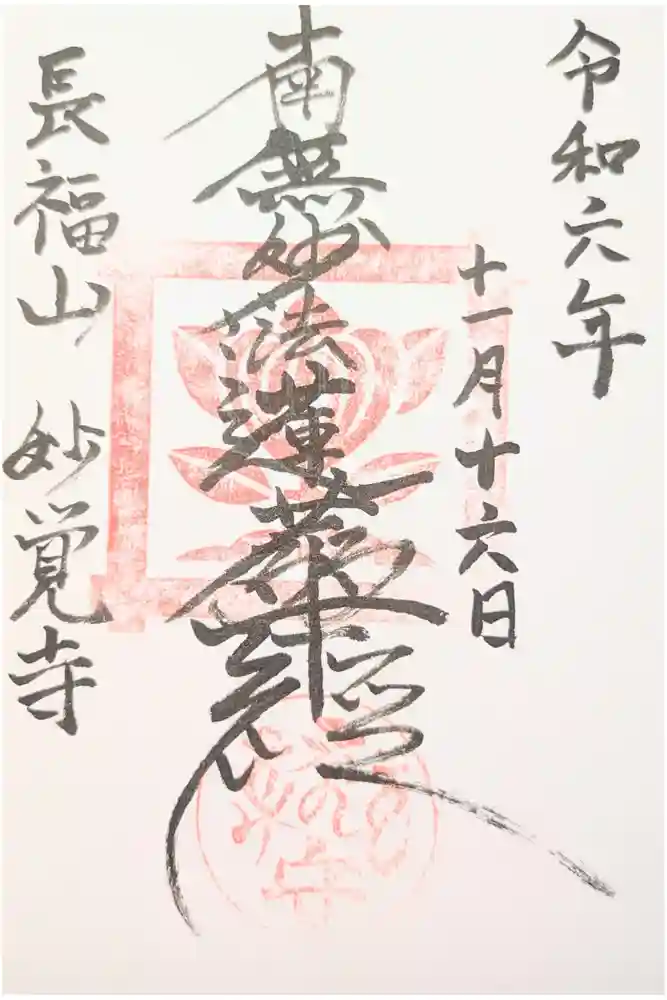 令和六年
十一月十六日
南無妙法蓮華経
長福山 妙覚寺